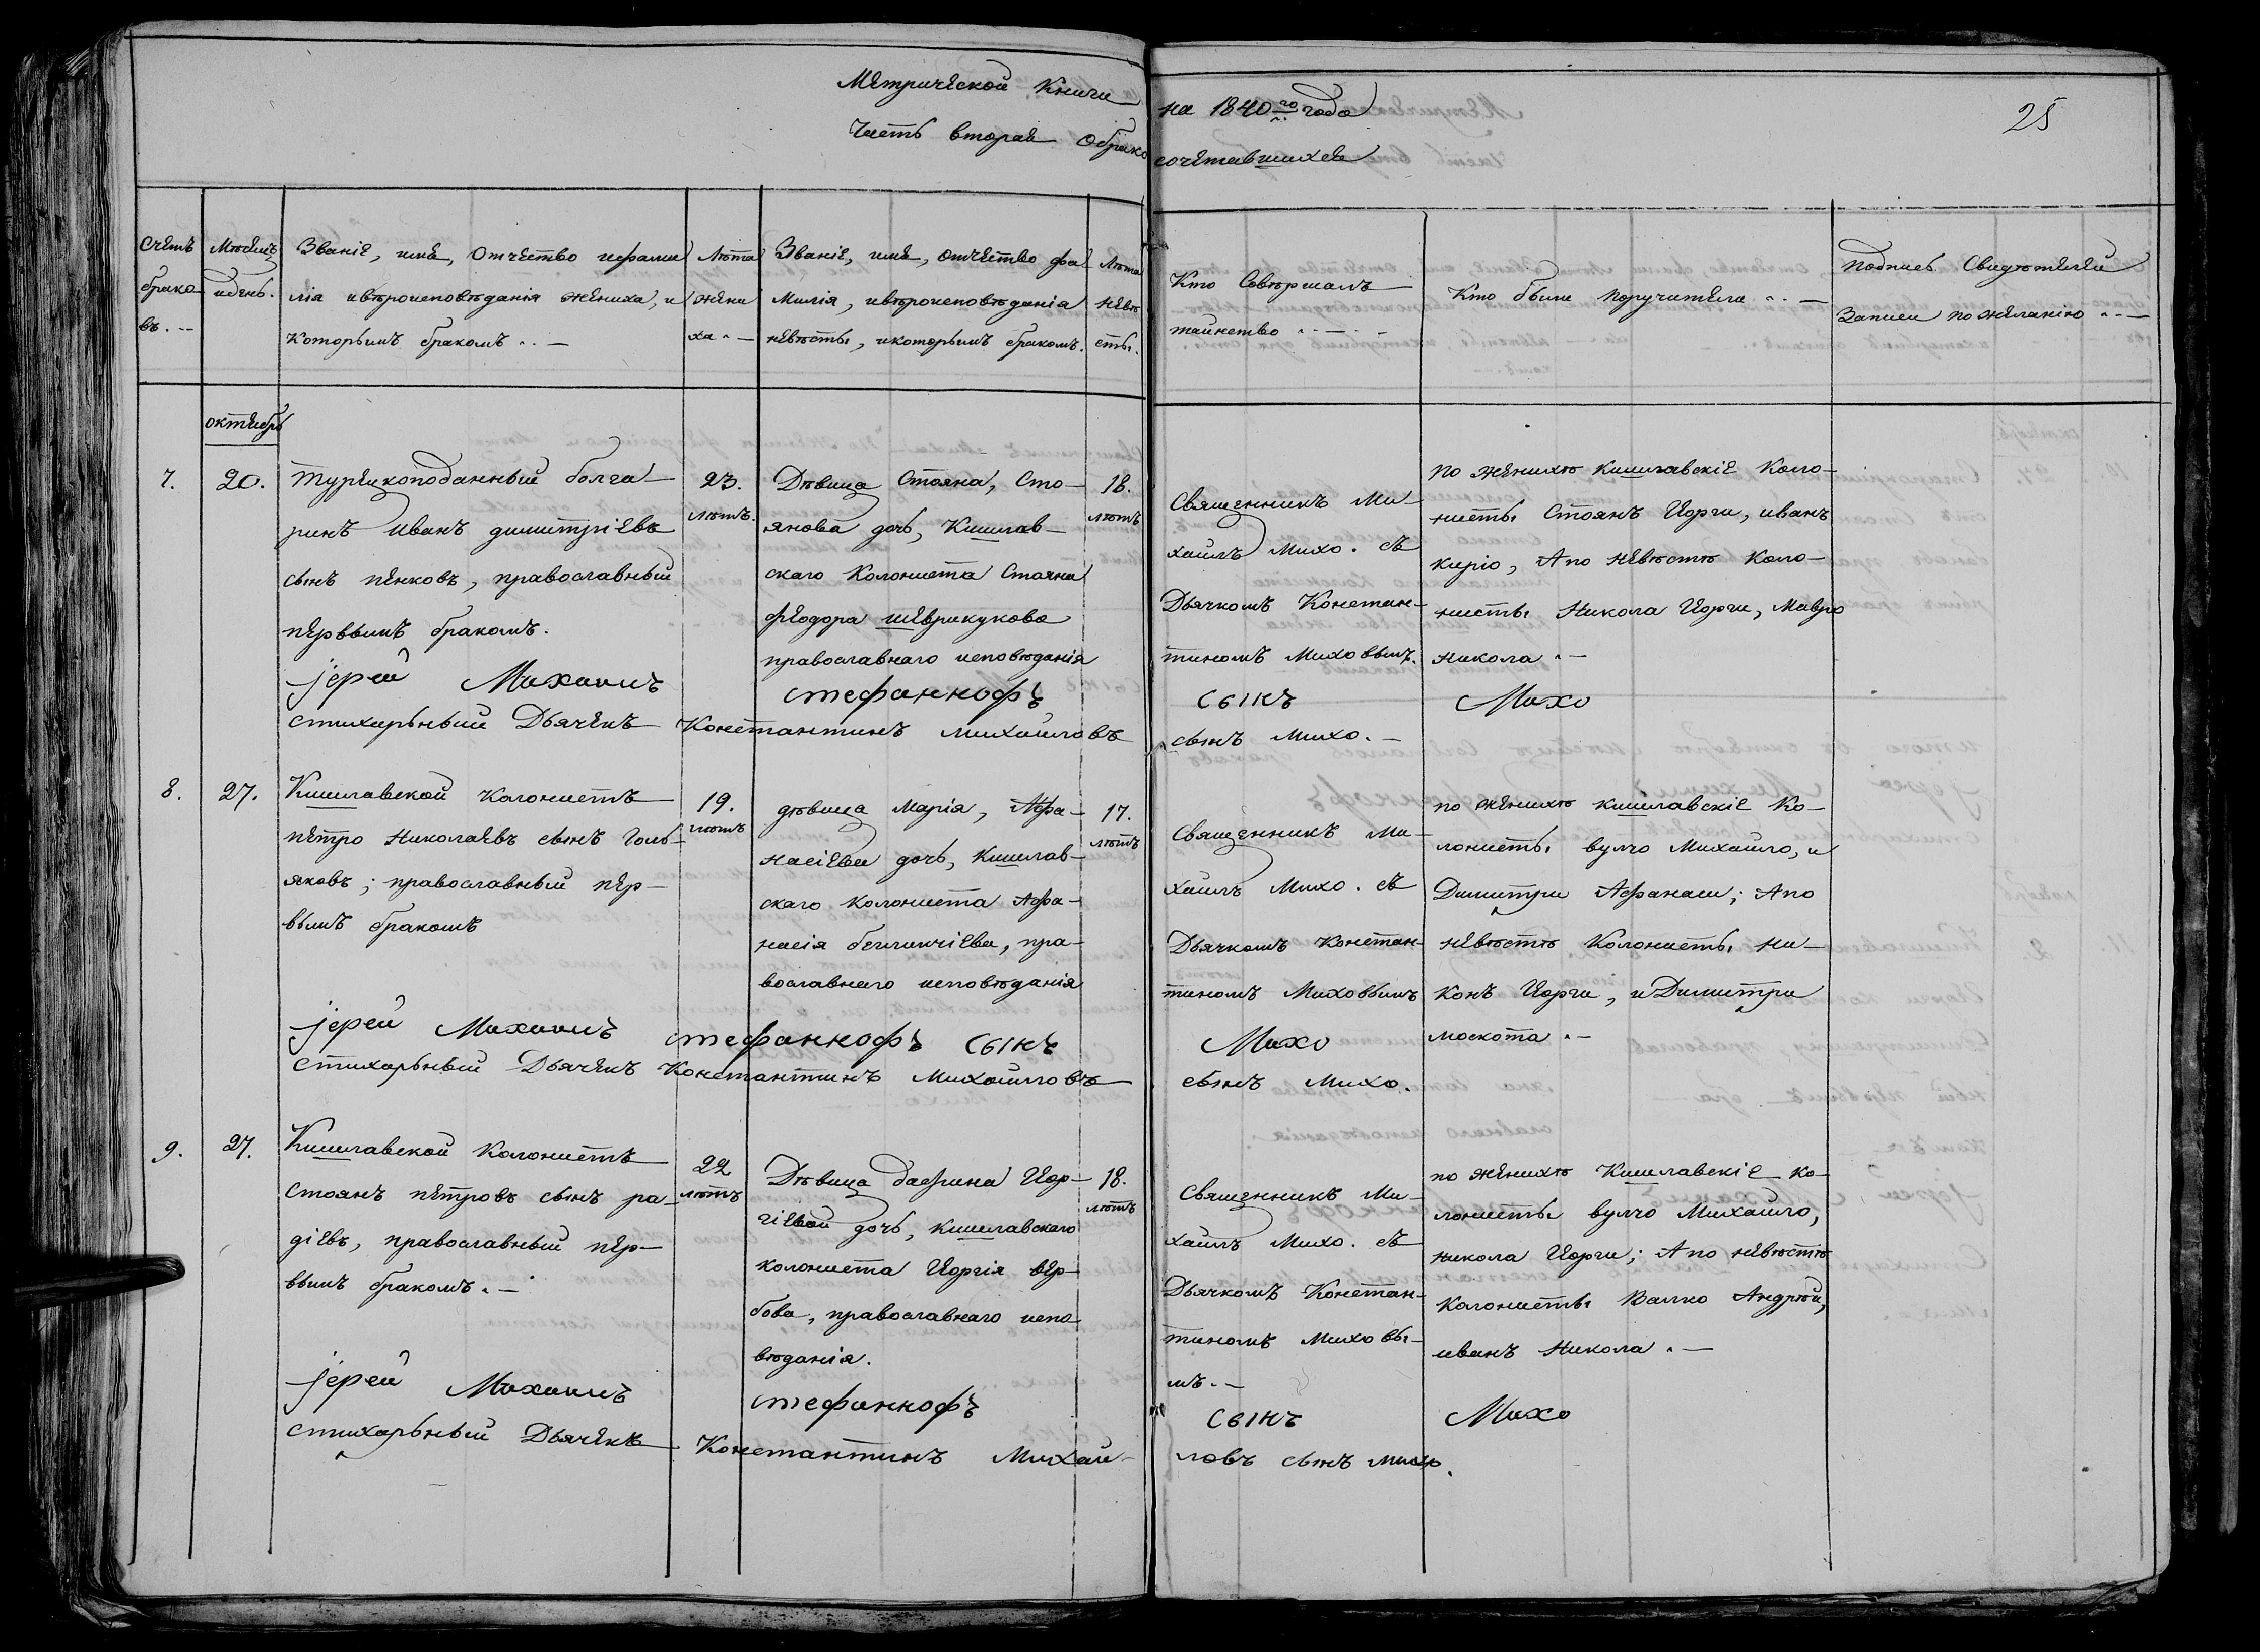 Метрической Книги на 1840го года
Часть вторая о брако сочетавшихся
25
Счетъ браковъ.
Мѣсяцъ и день.
Званіе, имя, отчество и фами
лія и вѣроисповѣданія жениха, и
которымъ бракомъ
Лѣта
жени
ха
Званіе, имя, отчество фа
милія, и вѣроисповѣданія
невѣсты, и которымъ бракомъ.
Лѣта
невѣ
сты.
Кто Совѣршалъ
таинство
Кто были поручители
Подпись Свидѣтелей
Записи по желанію
октябрь
7.
20.
Турецкоподанный болга
ринъ Иванъ димитріевъ
сынъ пенковъ, православный
первымъ бракомъ.
23.
лѣтъ.
Дѣвица Стояна, Сто-
янова дочь, Кишлав-
скаго Колониста Стояна
феодора
православнаго исповѣданія
18.
лѣтъ
Священникъ Ми-
хаилъ Михо. съ
Дьячкомъ Констан-
тиномъ Миховымъ.
по женихѣ кишлавскіе Коло-
нисты Стоянъ Иорги, иванъ
киріо, А по невѣстѣ Коло-
нисты Никола Иорги, Мавро
никола
јерей Михаилъ стефаннофъ сынъ Михо
стихарьный Дьячекъ Константинъ Михайловъ сынъ Михо.
8.
27.
Кишлавской колонистъ
петро Николаевъ сынъ голь-
яковъ; православный пер-
вымъ бракомъ
19.
лѣтъ
дѣвица Марія, Афа-
насіева дочь, Кишлав-
скаго колониста Афа-
насія, пра-
вославнаго исповѣданія
17.
лѣтъ
Священникъ Ми-
хаилъ Михо. съ
Дьячкомъ Констан-
тиномъ Миховымъ
по женихѣ кишлавскіе Ко-
лонисты вулчо Михайло, и
Димитри Афанаси; А по
невѣстѣ Колонисты Ни-
конъ Иорги, и Димитри
москота
јерей Михаилъ стефаннофъ сынъ Михо
Стихарьный Дьячекъ Константинъ Михайловъ сынъ Михо.
9.
27.
Кишлавской Колонистъ
Стоянъ петровъ сынъ ра-
діевъ, православный пер-
вымъ бракомъ.
22
лѣтъ
Дѣвица дафина Иор-
гіевой дочь, кишлавскаго
колониста Иоргія вер-
бова, православнаго испо
вѣданія.
18.
лѣтъ
Священникъ Ми-
хаилъ Михо. съ
Дьячкомъ Констан-
тиномъ Миховы-
мъ.
по женихѣ Кишлавскіе ко-
лонисты вулчо Михайло,
никола Иорги; А по невѣстѣ
Колонисты Валко Андрѣй,
иванъ Никола
јерей Михаилъ стефаннофъ сынъ Михо
стихарьный Дьячекъ Константинъ Михай-ловъ сынъ михо.